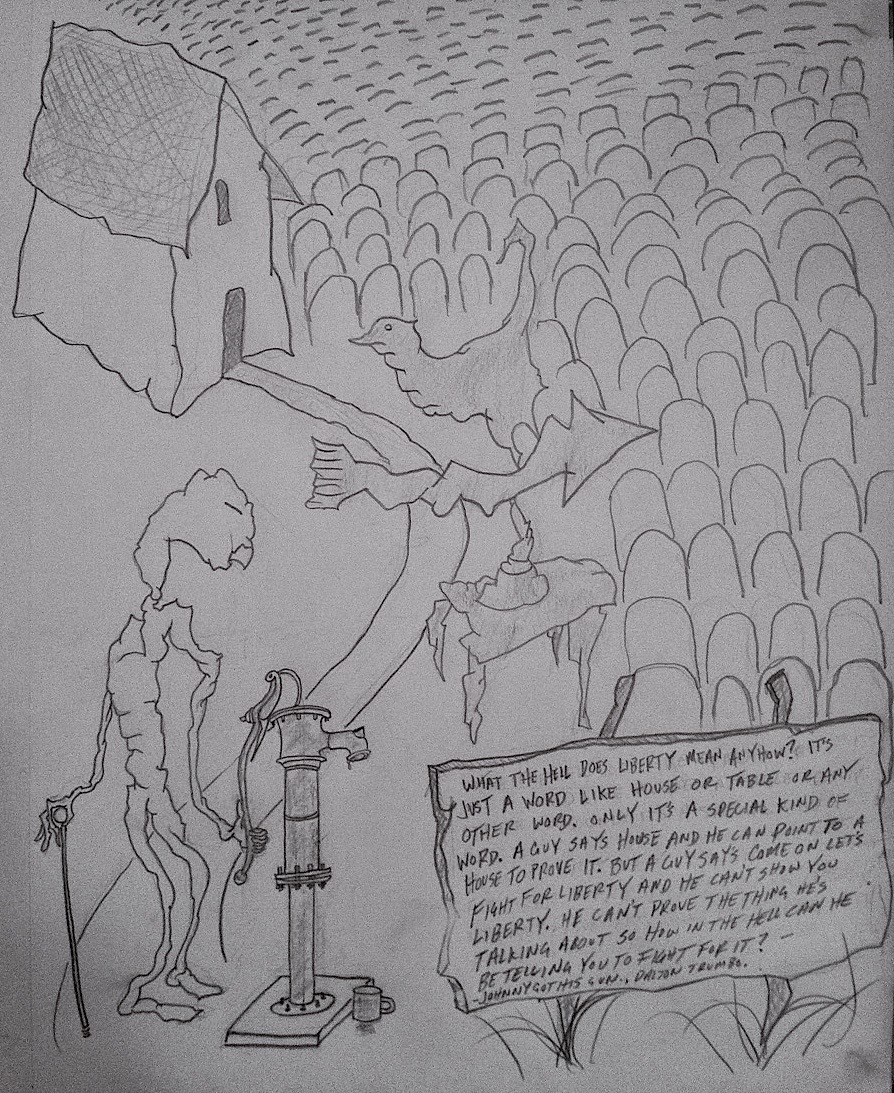 WHAT THE HELL DOES LIBERTY MEAN ANYHOW? IT'S
JUST A WORD LIKE HOUSE OR TABLE OR ANY
OTHER WORD. ONLY IT'S A SPECIAL KIND OF
WORD. A GUY SAYS HOUSE AND HE CAN POINT TO A
HOUSE TO PROVE IT. BUT A GUY SAYS COME ON LET'S
FIGHT FOR LIBERTY AND HE CAN'T SHOW YOU
LIBERTY. HE CAN'T PROVE THE THING HE'S
TALKING ABOUT SO HOW IN THE HELL CAN HE
BE TELLING YOU TO FIGHT FOR IT? —
-JOHNNY GOT HIS GUN., DALTON TRUMBO.